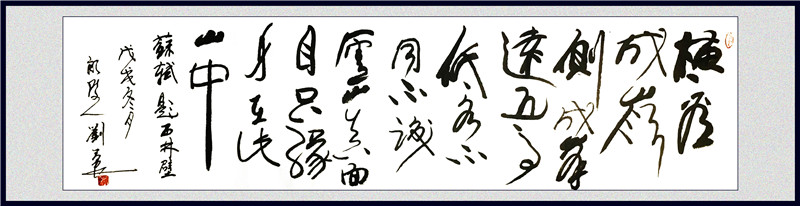 横看
成嶺
側成峯
遠近高
低各不
同不識
廬山真面
目只緣
身在此
山中
蘇軾題西林壁
戊戌冬月
劉